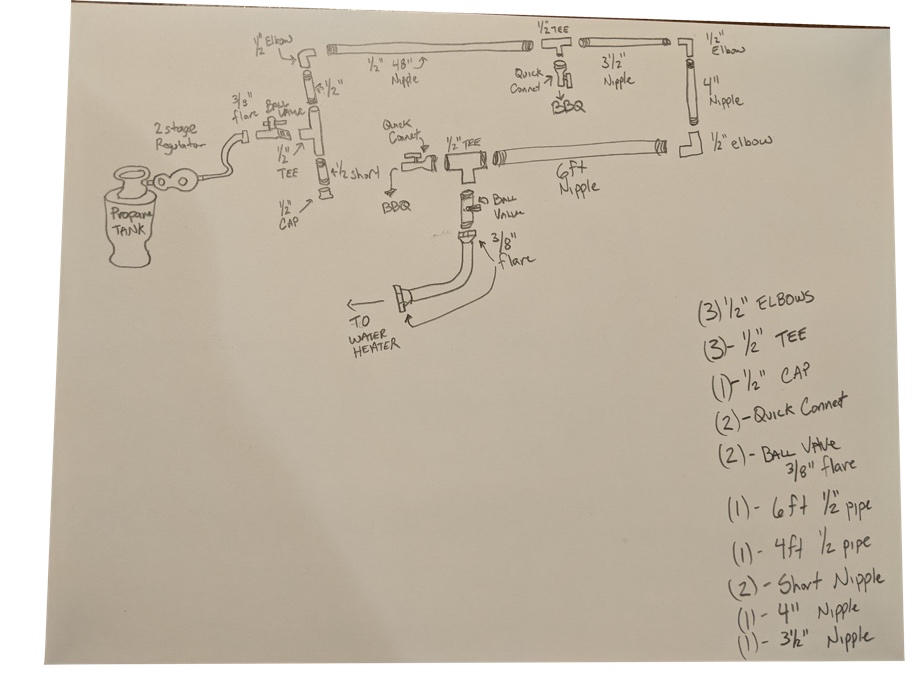 1/2" Elbow
1/2" TEE
1/2" Elbow
1/2" 48" Nipple
3 1/2" Nipple
Quick Connet
BBQ
4" Nipple
1/2"
3/8" flare
BALL VALVE
2 stage Regulator
1/2" TEE
Quick Connet
1/2" TEE
1/2" elbow
1/2 short
6ft Nipple
Propane TANK
1/2" CAP
BBQ
BALL VALVE
3/8" flare
TO WATER HEATER
(3) 1/2" ELBOWS
(3)- 1/2" TEE
(1)- 1/2" CAP
(2)- Quick Connet
(2)- BALL VALVE
3/8" flare
(1)- 6ft 1/2" pipe
(1)- 4ft 1/2 pipe
(2)- Short Nipple
(1)- 4" Nipple
(1)- 3 1/2" Nipple